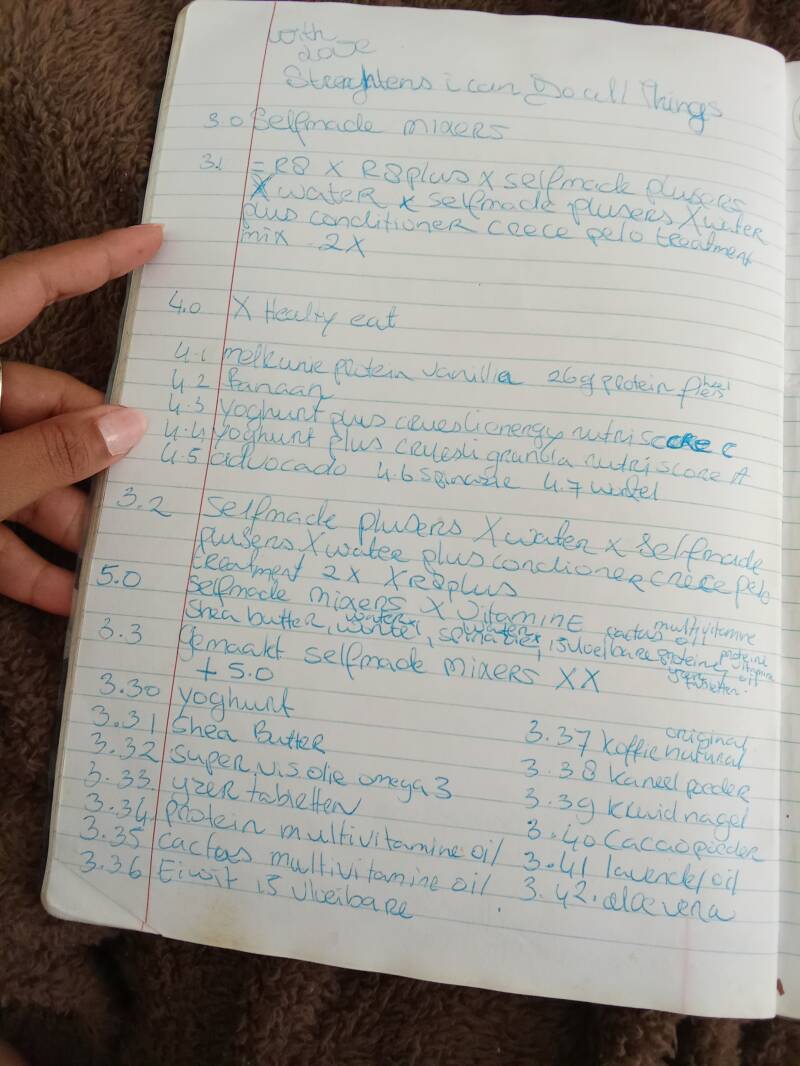 with
love
Streghtens i can Do all Things
3.0 Selfmade mixers
3.1 = R8 X R8plus X selfmade plusers
X water x selfmade plusers X water
plus conditioner crece pelo treatment
mix 2X
4.0 X Healty eat
4.1 melkunie protein vanillia 26g protein
4.2 Banaan
4.3 yoghurt plus cruesli energy nutri score C
4.4 yoghurt plus cruesli granola nutri score A
4.5 advocado 4.6 spinazie 4.7 wortel
3.2 Selfmade plusers X water x selfmade
plusers X water plus condioner crece pelo
treatment 2X X R8plus
5.0 selfmade mixers X vitamine
shea butter, wortel, spinazie, cactus oil multivitamine
3.3 Gemaakt selfmade mixers XX
+ 5.0
3.30 yoghurt
3.31 Shea Butter
3.32 super vis olie omega 3
3.33. yzer tabletten
3.34. protein multivitamine oil
3.35 cactus multivitamine oil
3.36 Eiwit
3.37 koffie original natural
3.38 kaneel poeder
3.39 kruidnagel
3.40 Cacao poeder
3.41 lavendel oil
3.42. aloe vera